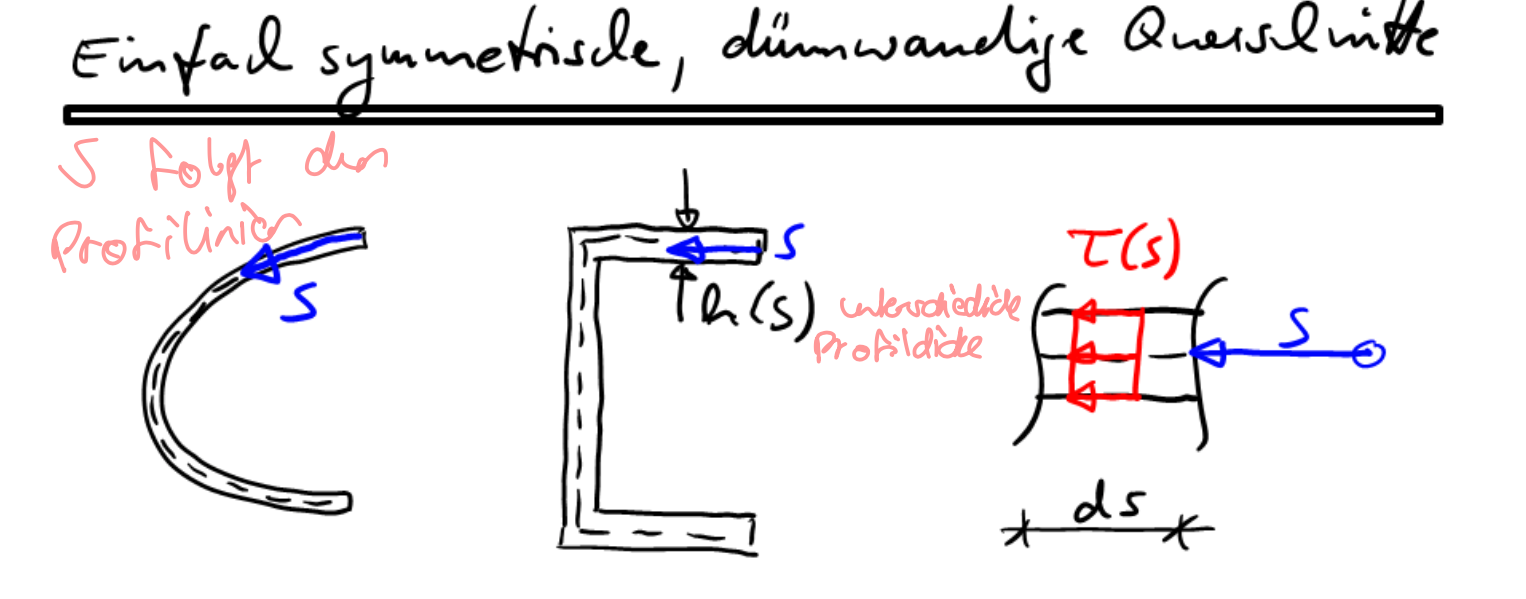 Einfach symmetrische, dünnwandige Querschnitte
S folgt den
Profilinien
S
S
h(s)
unterschiedliche
Profildicke
τ(s)
S
ds